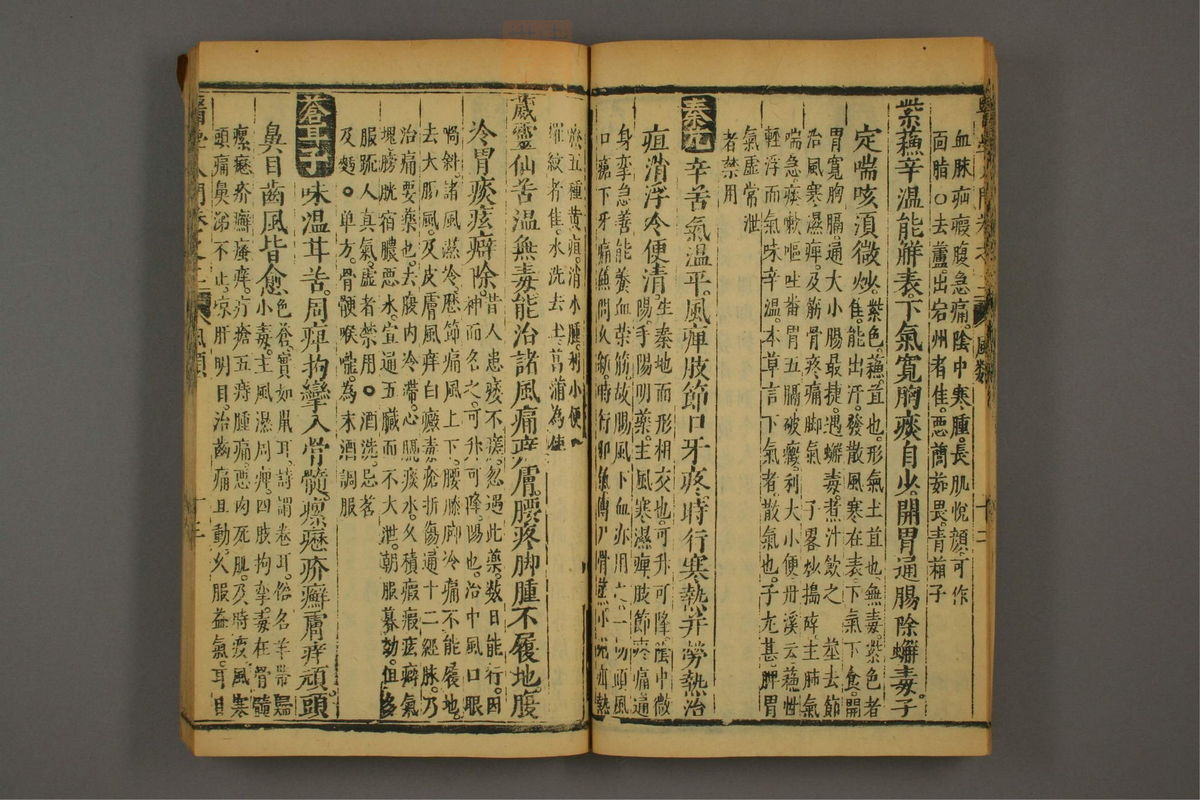 血脉疝瘕腹急痛陰中寒腫長肌悅顏可作
面脂○去蘆出宕州者佳惡藺茹畏青葙子
紫蘇辛溫能解表下氣寬胸痰自少開胃通腸除蠏毒子
定喘咳須微炒紫色蘇宜也形氣土宜也無毒紫色者
佳能出汗發散風寒在表下氣下食開
胃寬胸膈通大小腸最捷遇蠏毒煮汁飲之莖去節
治風寒濕痺及筋骨疼痛脚氣子畧炒搗碎主肺氣
喘急痰嗽嘔吐畨胃五膈破癥利大小便丹溪云蘇性
輕浮而氣味辛溫本草言下氣者散氣也子尤甚脾胃
氣虛常泄
者禁用
秦艽辛苦氣溫平風痺肢節口牙疼時行寒熱并勞熱治
疸消浮令便清生秦地而形相交也可升可降陰中微
陽手陽明藥主風寒濕痺肢節疼痛通
身孿急善能養血荣筋故腸風下血亦用之一切頭風
口
療五種黃疸消水腫利小便
羅紋者佳水洗去土菖蒲為使
葳靈仙苦溫無毒能治諸風痛痒膚腰疼脚腫不履地腹
冷胃痰痃癖除昔人患痿不瘥忽遇此藥数日能行因
神而名之可升可降陽也治中風口眼
喎斜諸風濕冷歷節痛風上下腰膝脚冷痛不能履地
去大風及皮膚風痒白癜毒瘡折傷通十二經脉乃
治痛要藥也去腹内冷滯心膈痰水久積瘕痃癖氣
塊膀胱宿膿惡水宣通五臟而不大泄朝服暮効但多
服踈人真氣虛者禁用○酒洗忌茗
及麪○单方骨髓喉嚨為末酒調服
蒼耳子味溫苷苦周痺拘攣入骨髓瘰癧疥癬膚痒頑頭
鼻目齒風皆愈色蒼實如鼠耳詩謂卷耳俗名羊帶歸
小毒主風濕周痺四肢拘孿毒在骨髓
瘰癧疥癬瘙痒疔瘡五痔腫痛惡肉死肌及時疫風寒
頭痛鼻涕不止凉肝明目治齒痛且動久服益氣耳目